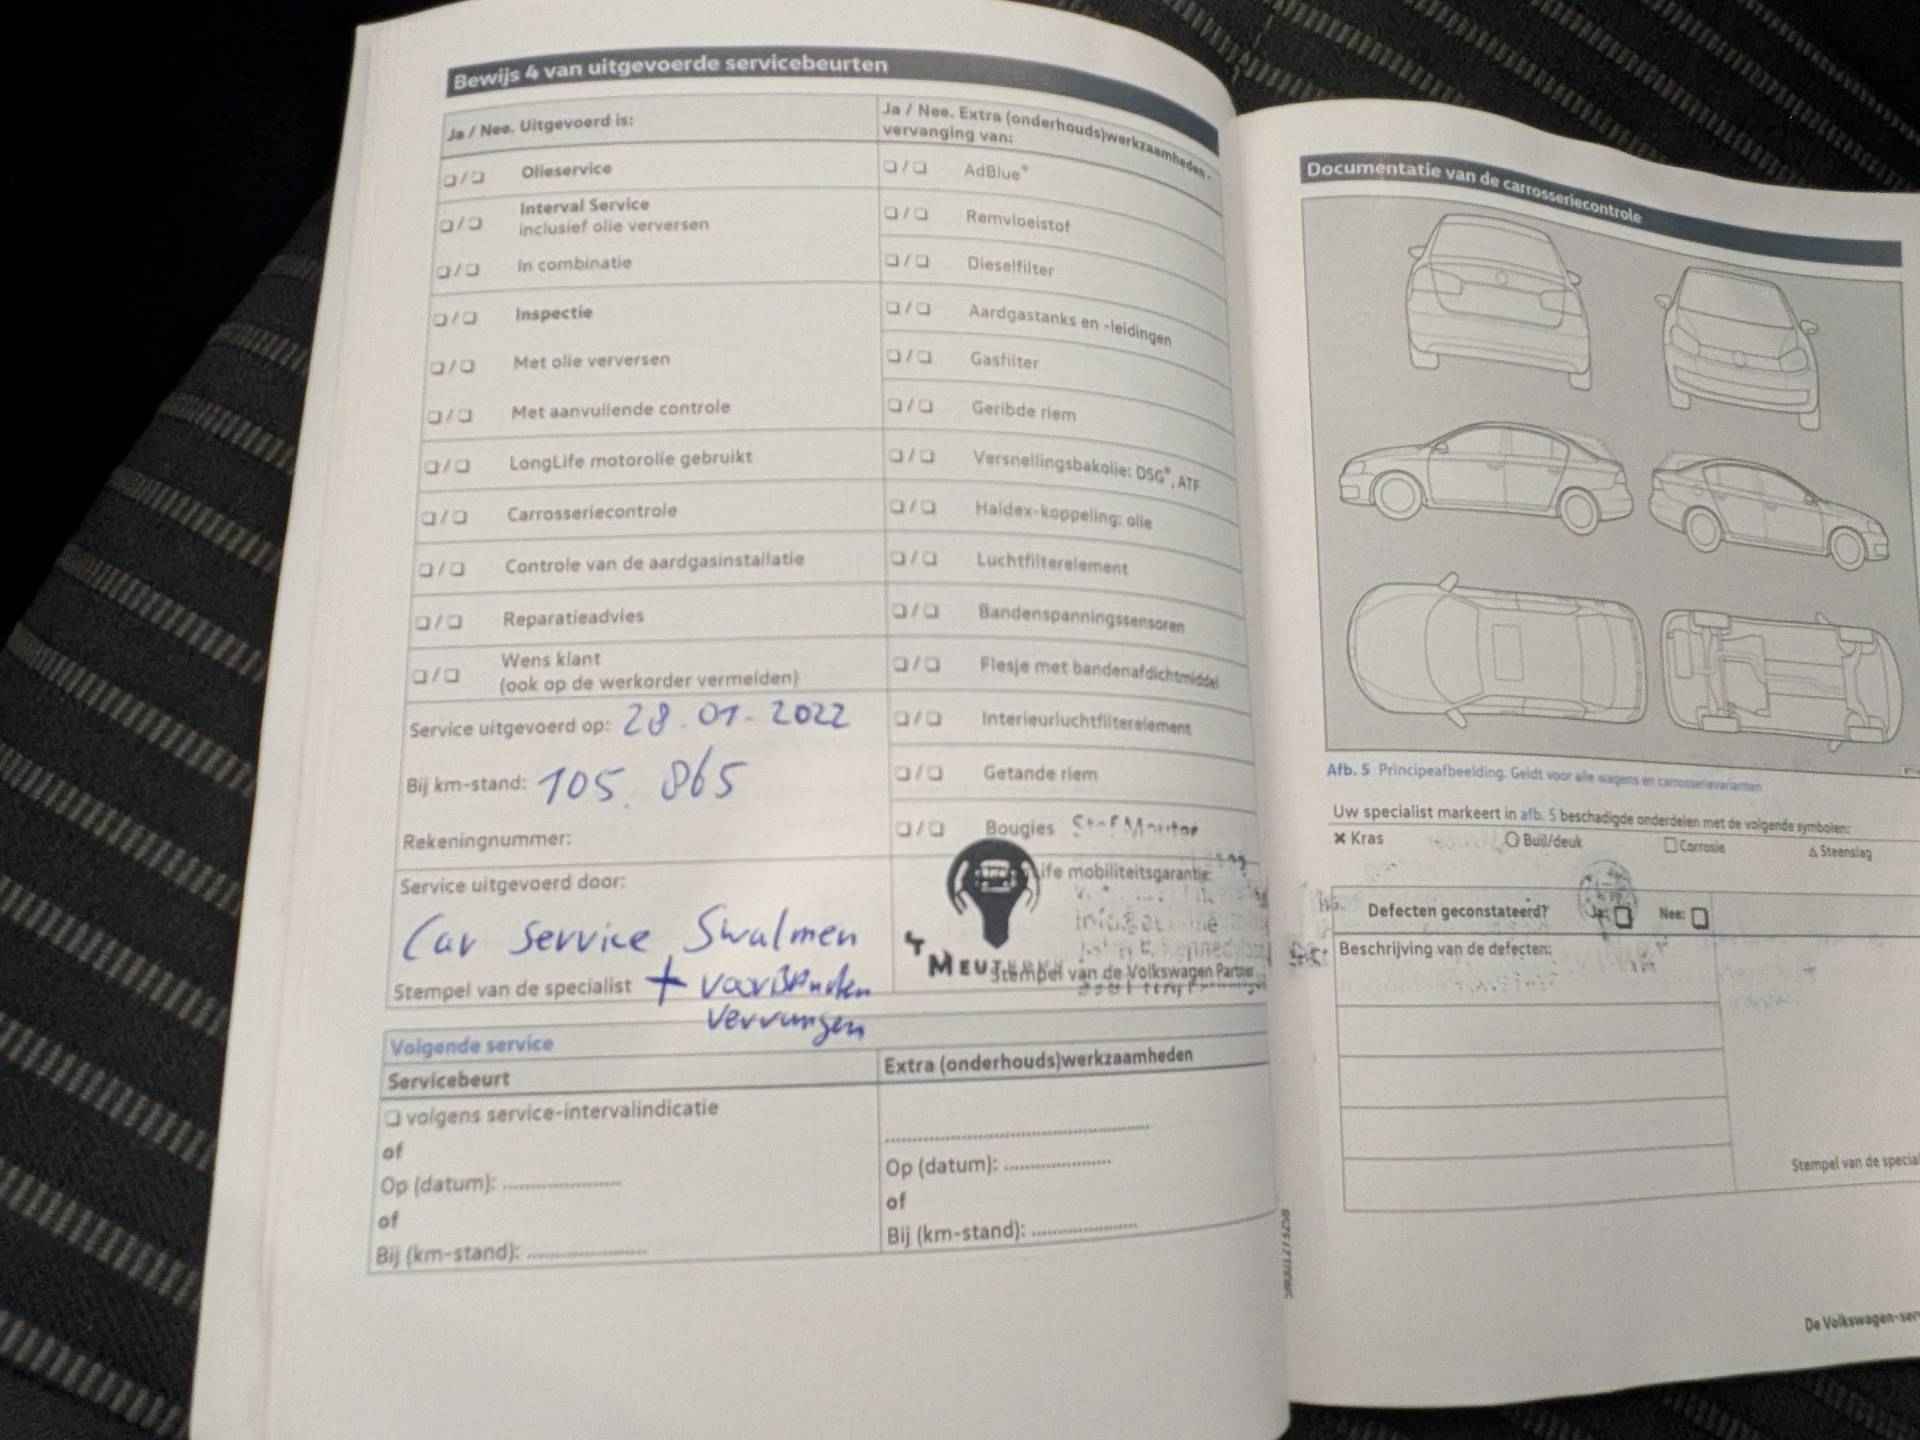 Bewijs 4 van uitgevoerde servicebeurten
Ja / Nee. Uitgevoerd is:
Olieservice
Interval Service
inclusief olie verversen
In combinatie
Inspectie
Met olie verversen
Met aanvullende controle
LongLife motorolie gebruikt
Carrosseriecontrole
Controle van de aardgasinstallatie
Reparatieadvies
Wens klant
(ook op de werkorder vermelden)
Service uitgevoerd op: 28-01-2022
Bij km-stand: 105.865
Rekeningnummer:
Service uitgevoerd door:
Car Service Swalmen
Stempel van de specialist + voorbanden
Ja / Nee. Extra (onderhouds)werkzaamheden -
vervanging van:
AdBlue®
Remvloeistof
Dieselfilter
Aardgastanks en -leidingen
Gasfilter
Geribde riem
Versnellingsbakolie: DSG®, ATF
Haldex-koppeling: olie
Luchtfilterelement
Bandenspanningssensoren
Flesje met bandenafdichtmiddel
Interieurluchtfilterelement
Getande riem
Bougies
mobiliteitsgarantie:
Stempel van de Volkswagen Partner
Volgende service
Servicebeurt
volgens service-intervalindicatie
of
Op (datum): ......................
of
Bij (km-stand): ......................
Extra (onderhouds)werkzaamheden
Op (datum): ......................
of
Bij (km-stand): ......................
Documentatie van de carrosseriecontrole
Afb. 5 Principeafbeelding. Geldt voor alle wagens en carrosserievarianten
Uw specialist markeert in afb. 5 beschadigde onderdelen met de volgende symbolen:
Kras Buil/deuk Corrosie Steenslag
Defecten geconstateerd? Ja: Nee:
Beschrijving van de defecten:
Stempel van de special
De Volkswagen-serv